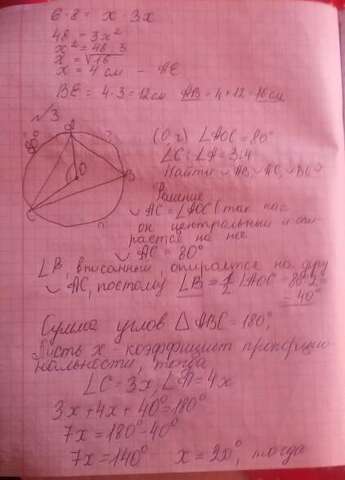 6·8 = x·3x
48 = 3x²
x² = 48:3
x = √16
x = 4 см - AE
BE = 4·3 = 12см AB = 4+12 = 16см
√3
80°
A
O
B
C
(O;r) ∠AOC = 80°
∠C:∠A = 3:4
Найти ◡AB, ◡AC, ◡BC
Решение
◡AC = ∠AOC (так как
он центральный и опи-
рается на нее
◡AC = 80°
∠B, вписанный, опирается на дугу
◡AC, поэтому ∠B = ½ ∠AOC = 80:2
= 40°
Сумма углов △ABC = 180°,
Пусть x коэффициент пропорцио-
нальности, тогда
∠C = 3x, ∠A = 4x
3x + 4x + 40° = 180°
7x = 180° - 40°
7x = 140° x = 20°, тогда